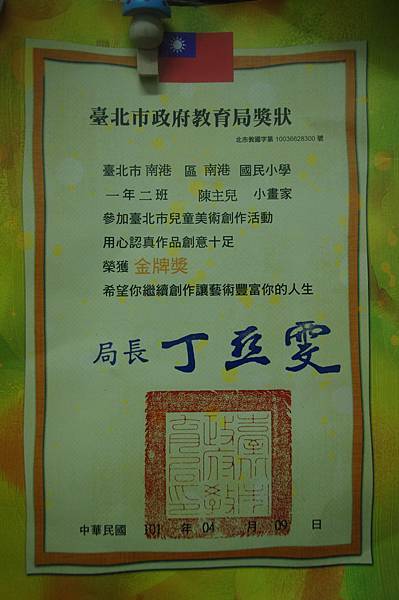 臺北市政府教育局獎狀
北市教國字第 10036628300 號
臺北市 南港 區 南港 國民小學
一年二班 陳主兒 小畫家
參加臺北市兒童美術創作活動
用心認真作品創意十足
榮獲 金牌獎
希望你繼續創作讓藝術豐富你的人生
局長 丁亞雯
臺北市政府教育局印
中華民國 101 年 04 月 09 日